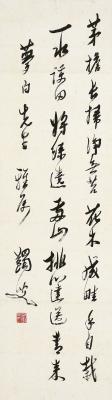 茅檐長掃淨無苔花木成畦手自栽
一水護田將綠遶兩山排闥送青來
夢白先生雅屬 蠲叟